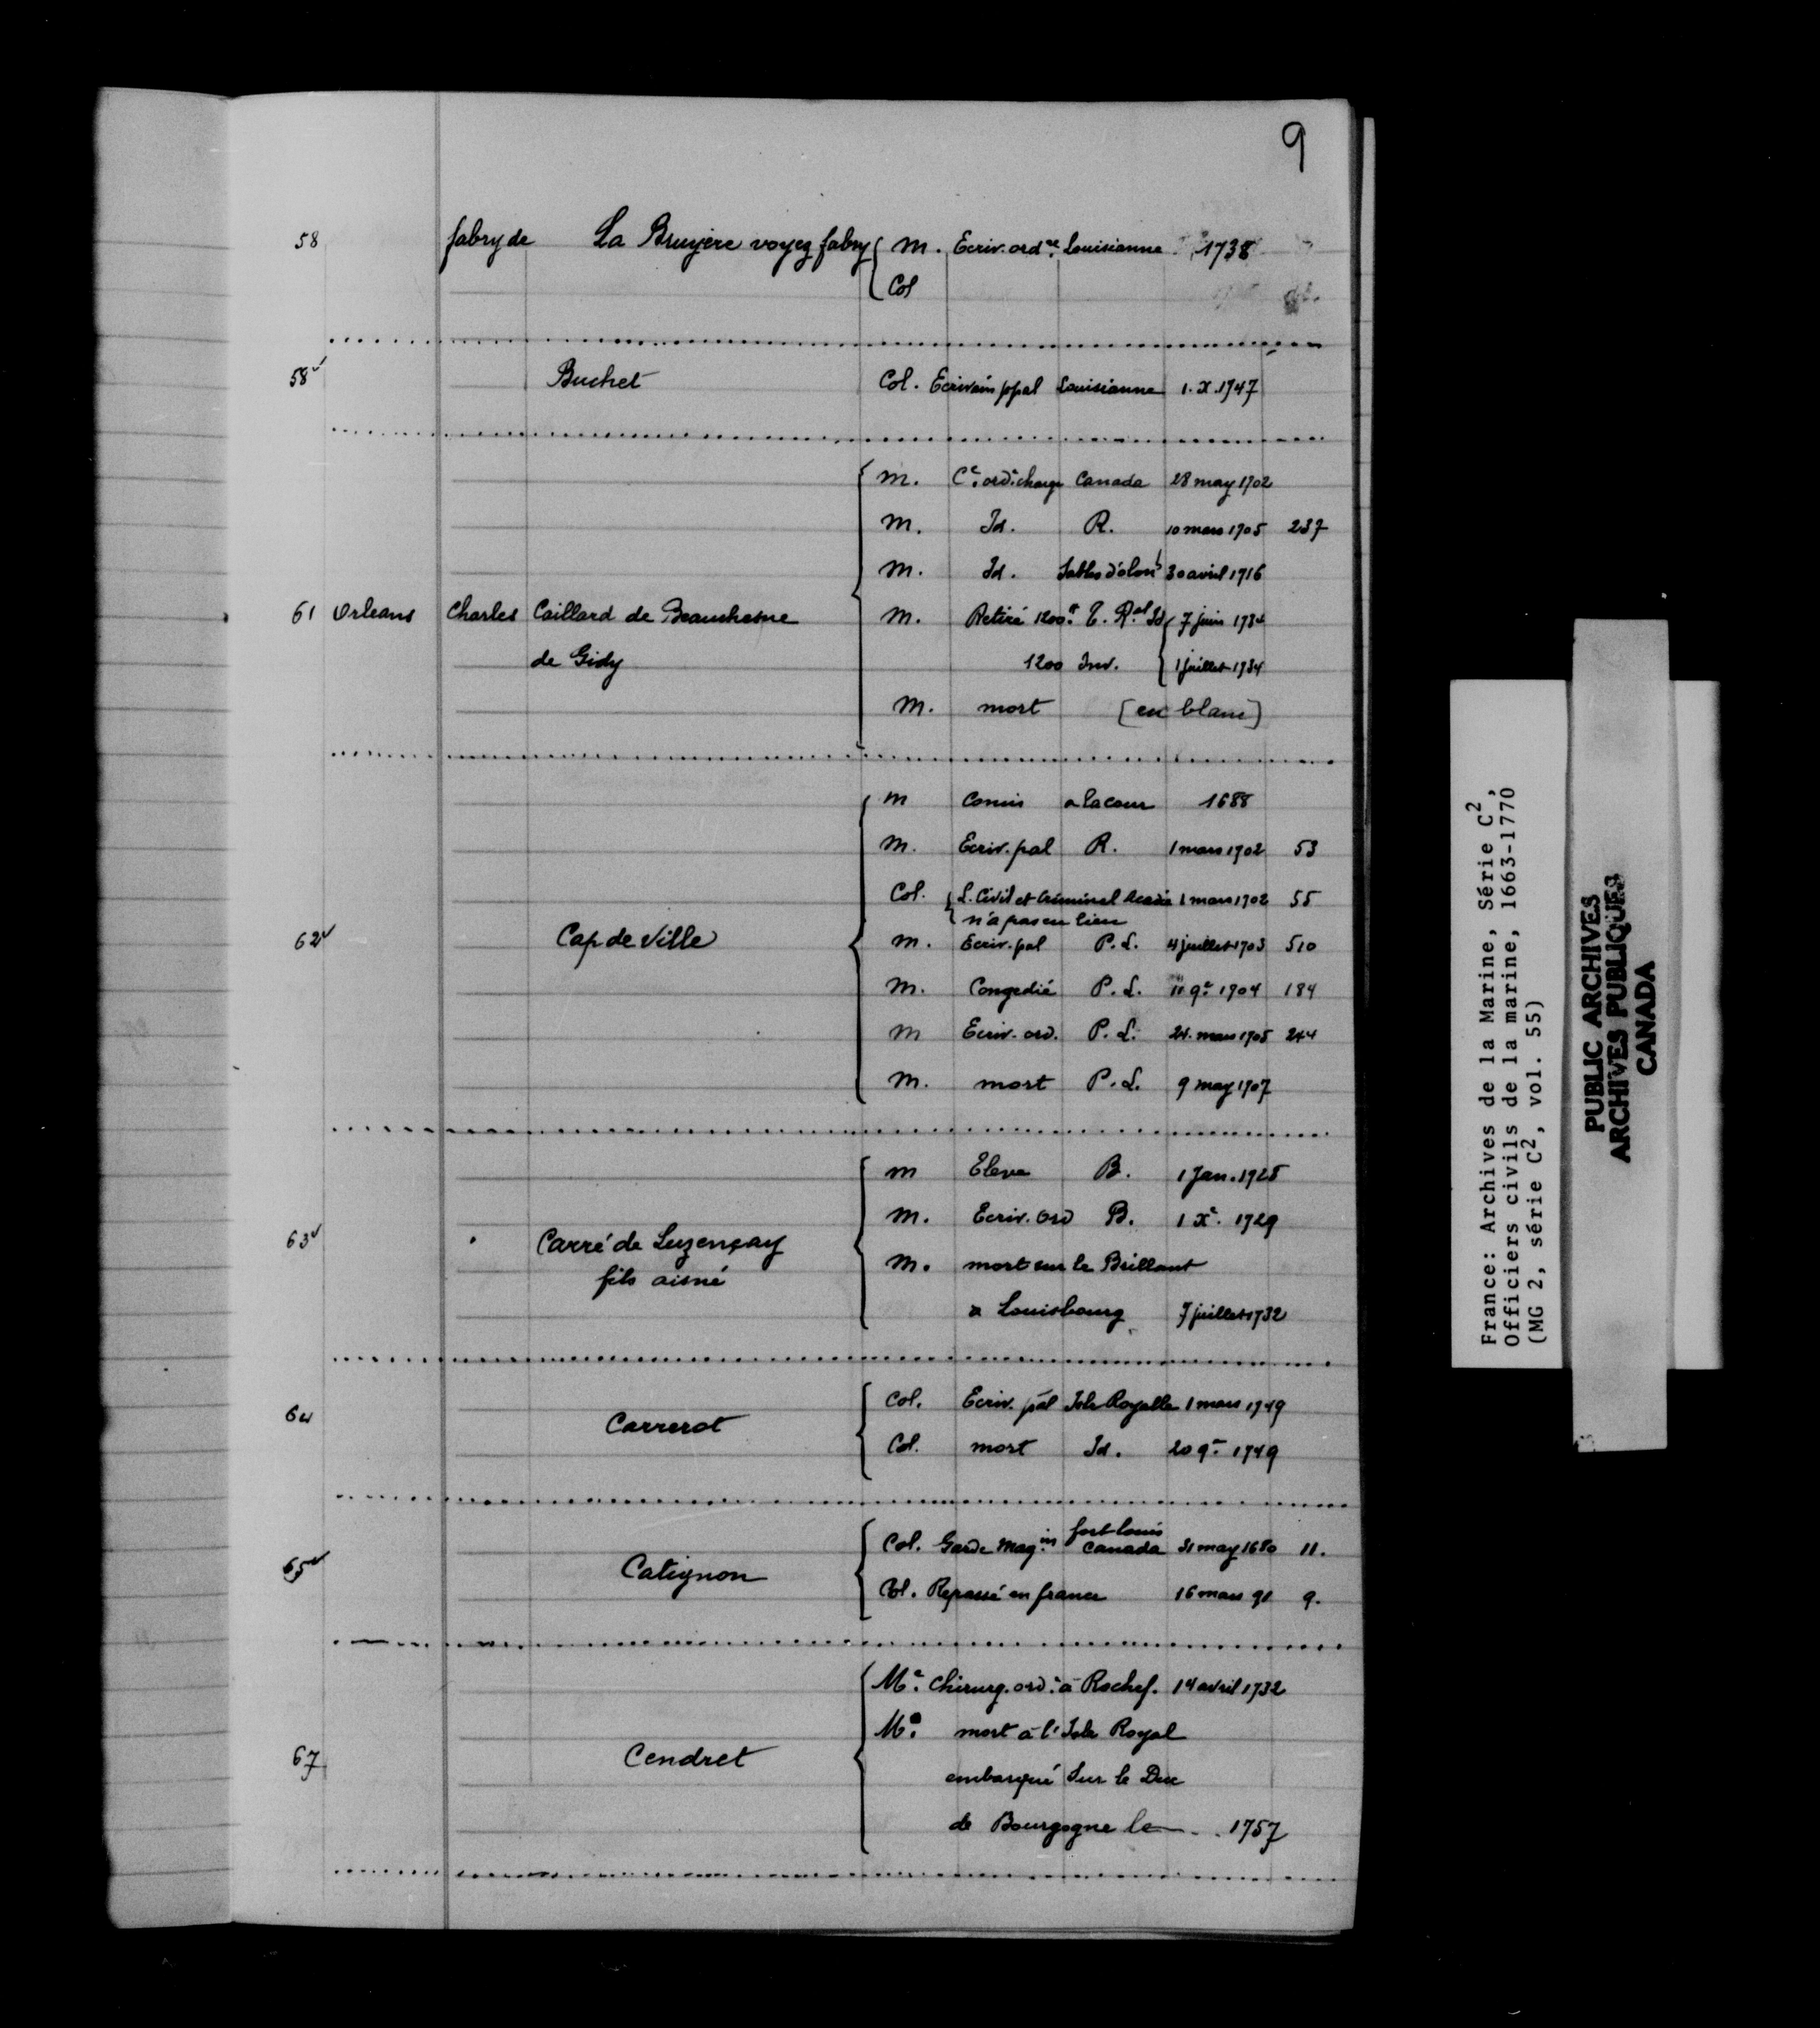 9
58 fabry de La Bruyère voyez fabry { M. Ecriv. ord.re Louisianne 1738
Col
58v Buchet Col. Ecrivain ppal Louisianne 1. X. 1747
M. Ce. ord.e charge Canada 28 may 1702
M. Id. R. 10 mars 1705 237
M. Id. Sables d'olon 30 avril 1716
61 Orleans Charles Caillard de Beauchesne M. Retiré 1200.tt T. R.al Id { 7 juin 1734
de Gidy 1200 Inv. 1 juillet 1734
M. mort [en blanc]
M Comis a la cour 1688
M. Ecriv. pal R. 1 mars 1702 53
Col. { L. Civil et Criminel Acadie 1 mars 1702 55
n'a pas eu lieu
62v Cap de Ville M. Ecriv. pal P. L. 4 juillet 1703 510
M. Congedié P. L. 11 9.re 1704 184
M Ecriv. ord. P. L. 24. mars 1705 244
M. mort P. L. 9 may 1707
M Eleve B. 1 Jan. 1725
M. Ecriv. ord B. 1 Xe. 1729
63v Carré de Luzençay
fils aisné
M. mort sur le Brillant
a Louisbourg 7 juillet 1732
64 Carrerot Col. Ecriv. pal Isle Royalle 1 mars 1749
Col. mort Id. 20 9.re 1749
65v Catignon Col. Garde Mag.in fort louis canada 31 may 1680 11.
Col. Repassé en france 16 mars 91 9.
M.e Chirurg. ord.e à Rochef. 14 avril 1732
M.e mort à l'Isle Royal
67 Cendret embarqué Sur le Duc
de Bourgogne le . . 1757
France: Archives de la Marine, Série C2,
Officiers civils de la marine, 1663-1770
(MG 2, série C2, vol. 55)
PUBLIC ARCHIVES
ARCHIVES PUBLIQUES
CANADA